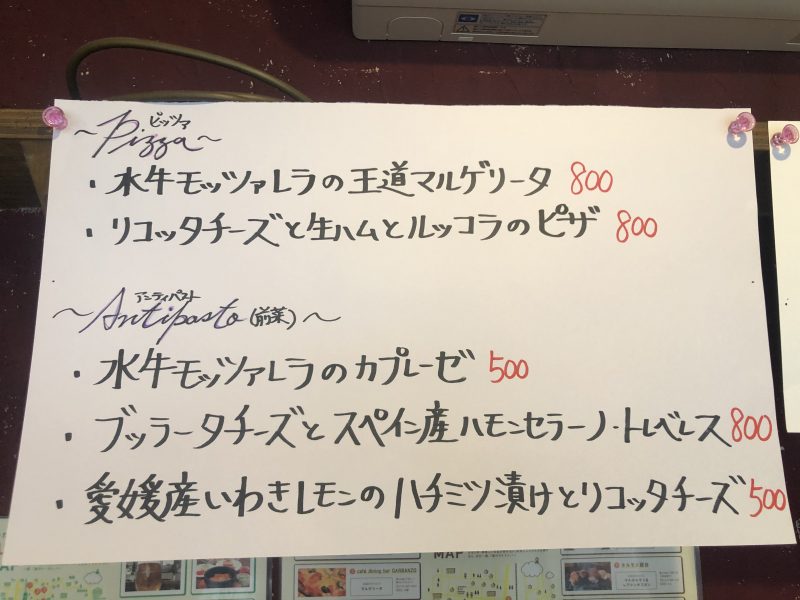 ピッツァ
~Pizza~
・水牛モッツァレラの王道マルゲリータ 800
・リコッタチーズと生ハムとルッコラのピザ 800
アンティパスト
~Antipasto(前菜)~
・水牛モッツァレラのカプレーゼ 500
・ブッラータチーズとスペイン産ハモンセラーノ・トレベレス 800
・愛媛産いわきレモンのハチミツ漬けとリコッタチーズ 500
MAP
MAP
café dining bar GARBANZO